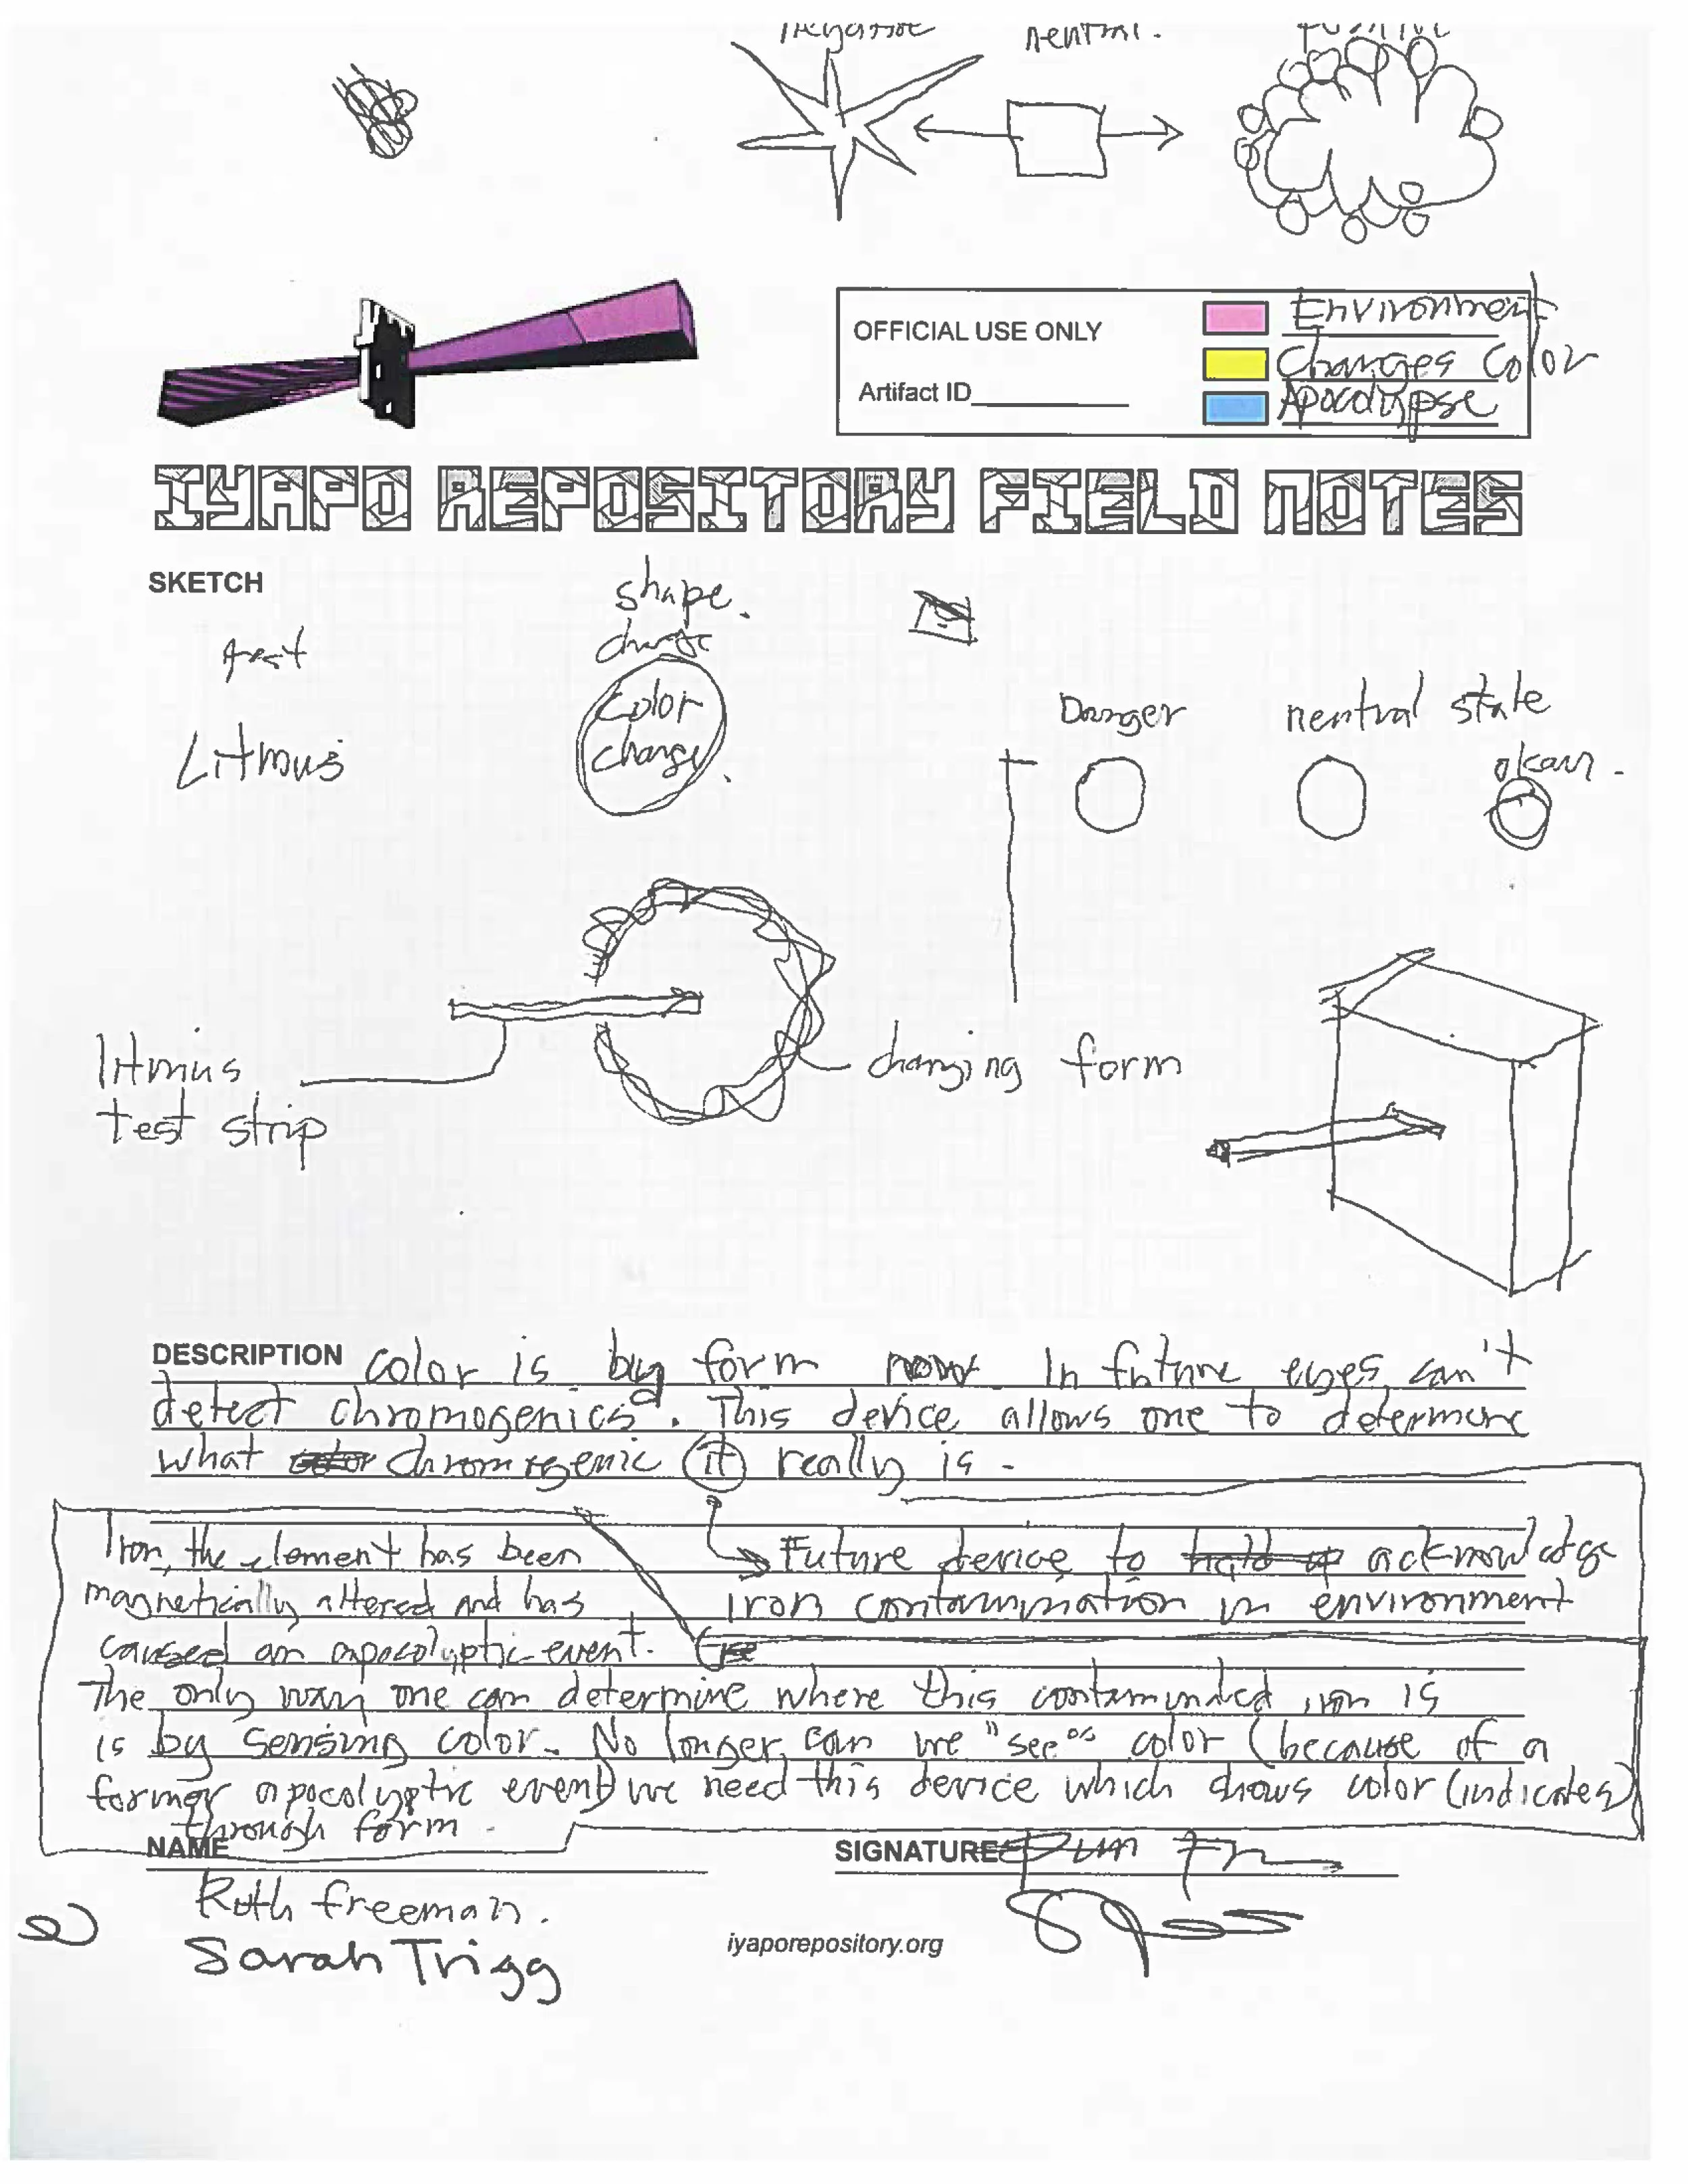 negative neutral. positive
OFFICIAL USE ONLY
Artifact ID
Environment
Changes Color
Apocalypse
IYAPO REPOSITORY FIELD NOTES
SKETCH
shape.
Litmus
Color
change.
Danger
neutral state
okay.
litmus
test strip
changing form
DESCRIPTION color is by form now In future eyes can't
detect chromogenics. This device allows one to determine
what color chromogenic it really is -
Iron, the element has been
magnetically altered and has
caused an apocolyptic event.
Future device to hold up acknowledge
iron contamination in environment
The only way one can determine where this contaminated iron is
is by sensing color. No longer can we "see" color (because of a
former apocolyptic event) we need this device which shows color (indicates)
through form.
NAME
SIGNATURE
Ruth freeman.
Sarah Trigg
iyaporepository.org